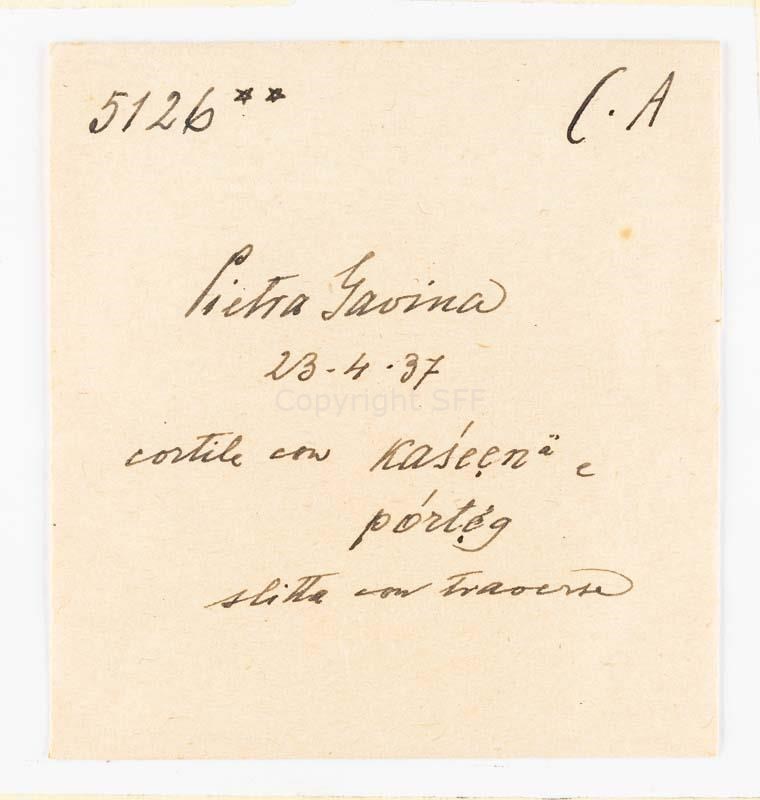 5126** C. A
Pietra Gavina
23-4-37
Copyright SFF
cortile con kaśeẹnä e
pórtẹ́g
slitta con traverse